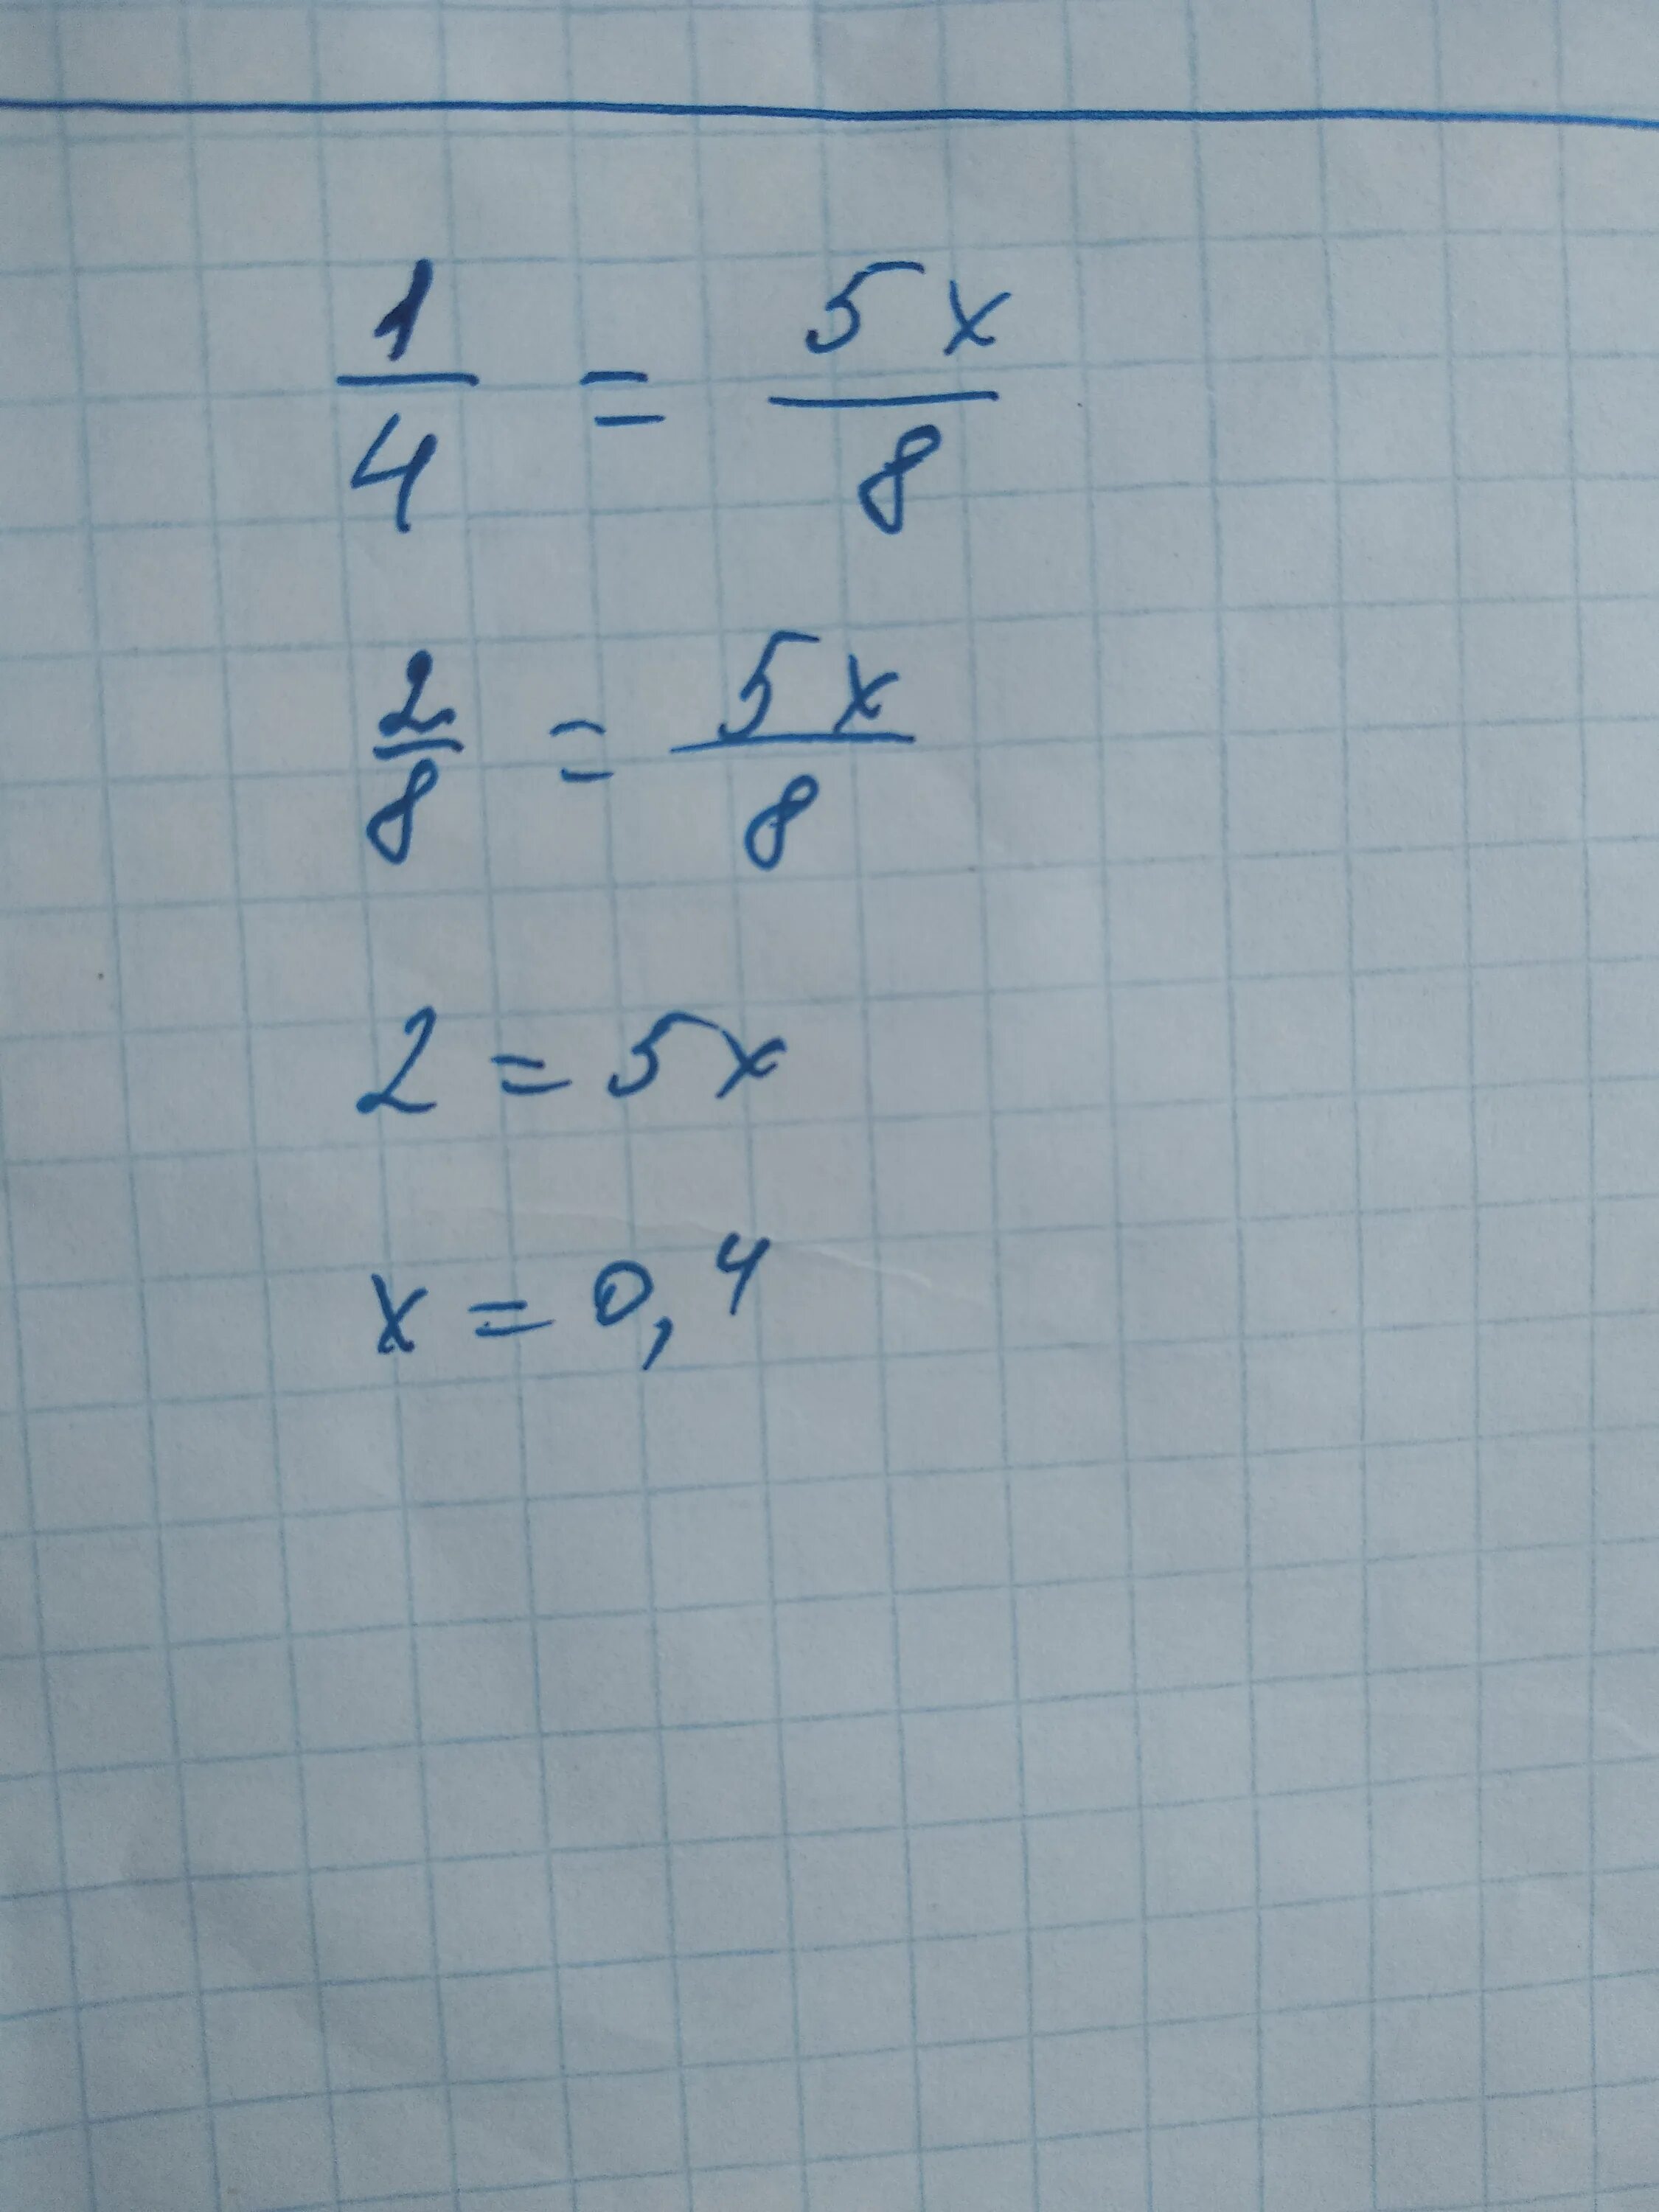 1/4 = 5x/8
2/8 = 5x/8
2 = 5x
x = 0,4